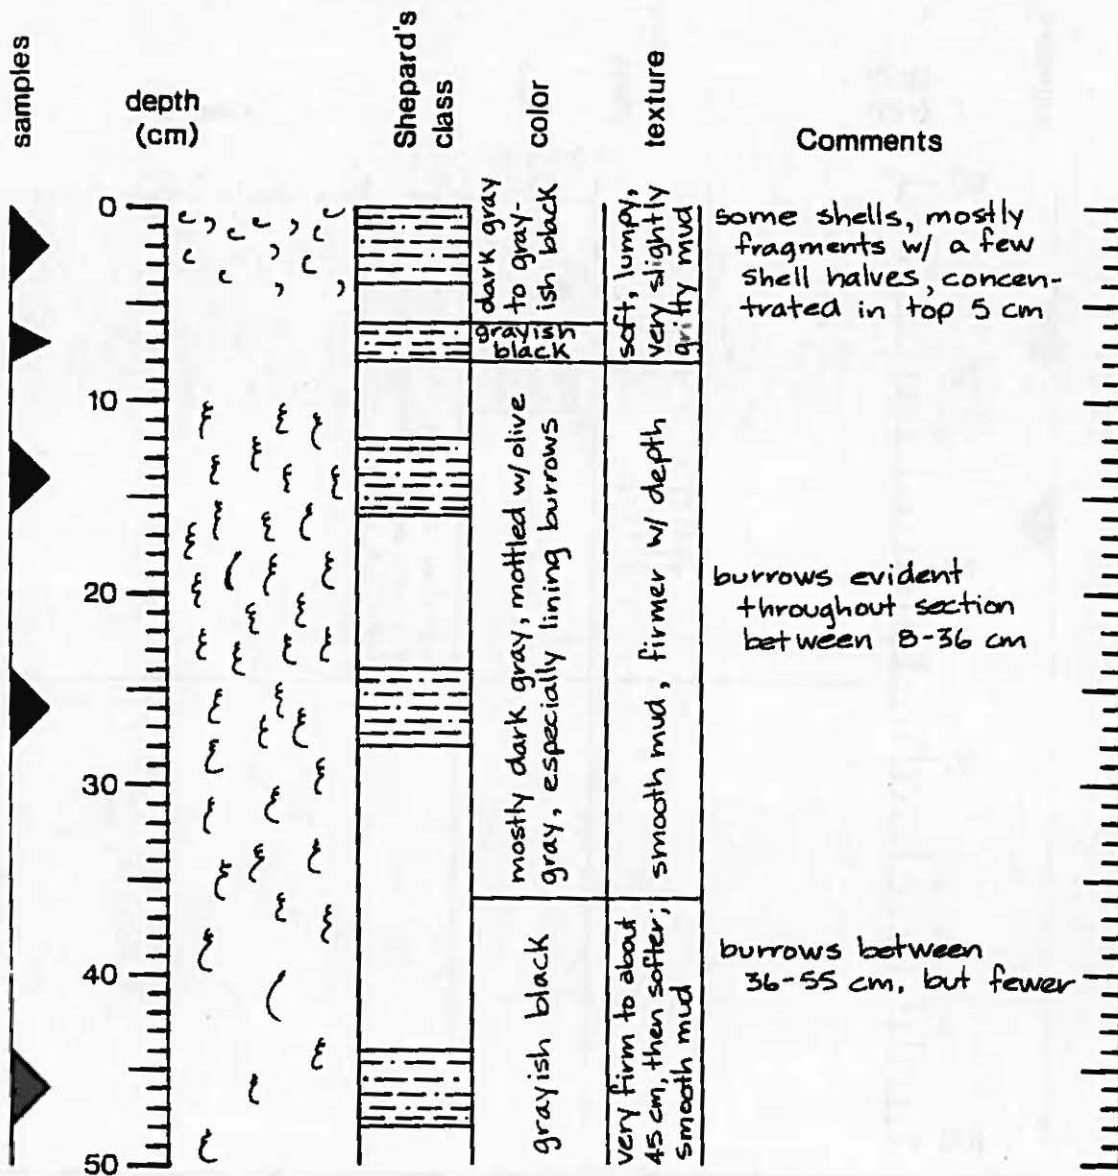 samples
depth
(cm)
Shepard's
class
color
texture
Comments
0
10
20
30
40
50
dark gray
to gray-
ish black
grayish
black
mostly dark gray, mottled w/ olive
gray, especially lining burrows
grayish black
soft, lumpy,
very slightly
gritty mud
smooth mud, firmer w/ depth
very firm to about
45 cm, then softer;
smooth mud
some shells, mostly
fragments w/ a few
shell halves, concen-
trated in top 5 cm
burrows evident
throughout section
between 8-36 cm
burrows between
36-55 cm, but fewer